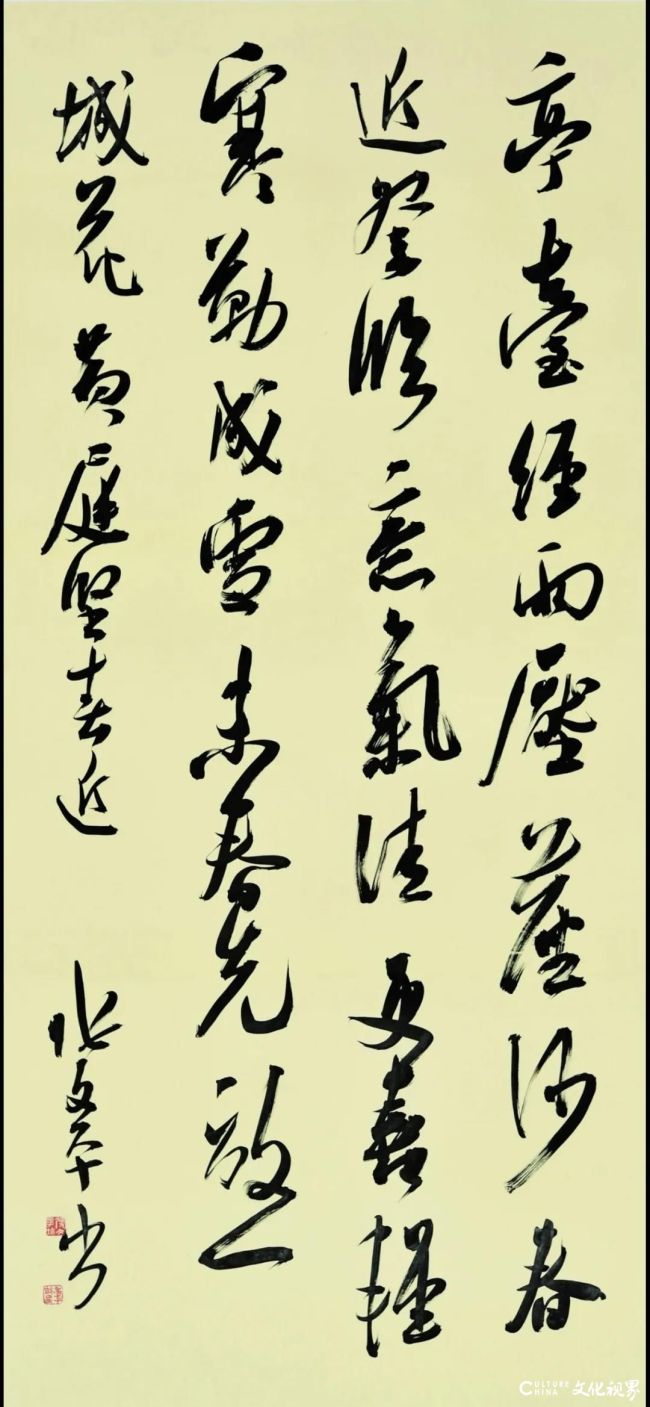 亭臺經雨壓塵沙春
近登臨意氣佳更喜輕
寒勒成雪未春先放一
城花 黄庭堅春近 张文 书
CULTURE CHINA 文化视界